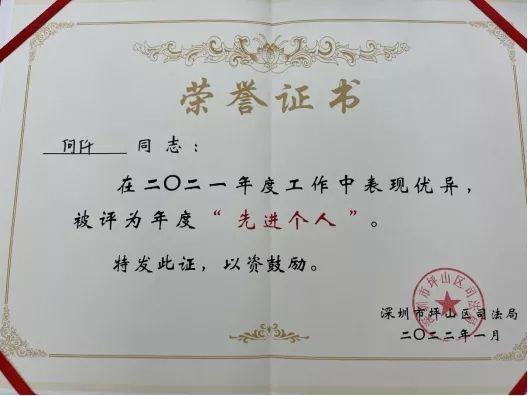 荣誉证书
何阡 同志：
在二〇二一年度工作中表现优异，
被评为年度“先进个人”。
特发此证，以资鼓励。
深圳市坪山区司法局
深圳市坪山区司法局
二〇二二年一月